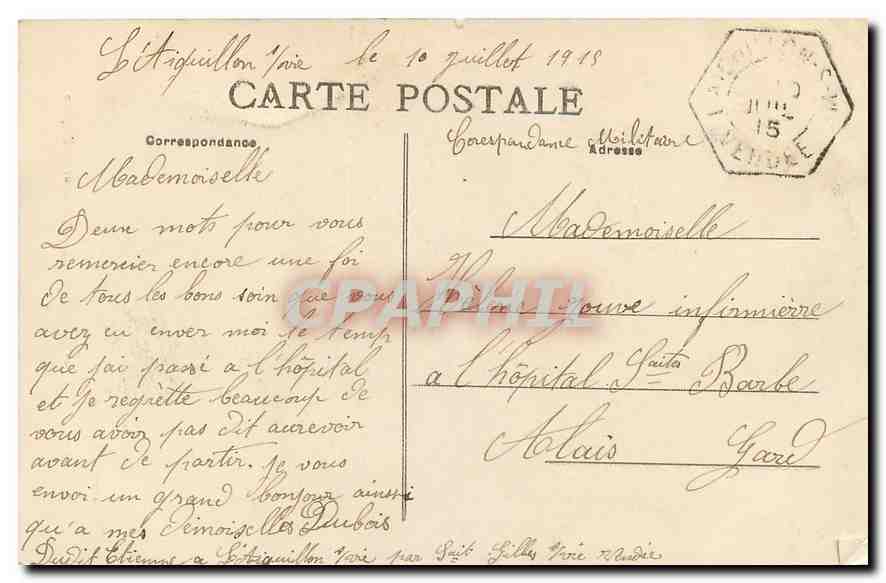 L'Aiguillon s/vie le 10 juillet 1915
CARTE POSTALE
Correspondance
Corespondance Militaire
Adresse
VENDEE
15
Mademoiselle
Deux mots pour vous
remercier encore une foi
de tous les bons soin que vous
avez eu enver moi le temp
que j'ai passé a l'hôpital
et je regrètte beaucoup de
vous avoir pas dit aurevoir
avant de partir. je vous
envoi un grand bonjour ainssi
qu'a mes demoiselles Dubois
Dudit Etienne a L'Aiguillon s/vie par Saint Gilles s/vie vendée
Mademoiselle
Jouve infirmièrre
a l'hôpital Barbe
Alais Gard
CPAPHIL